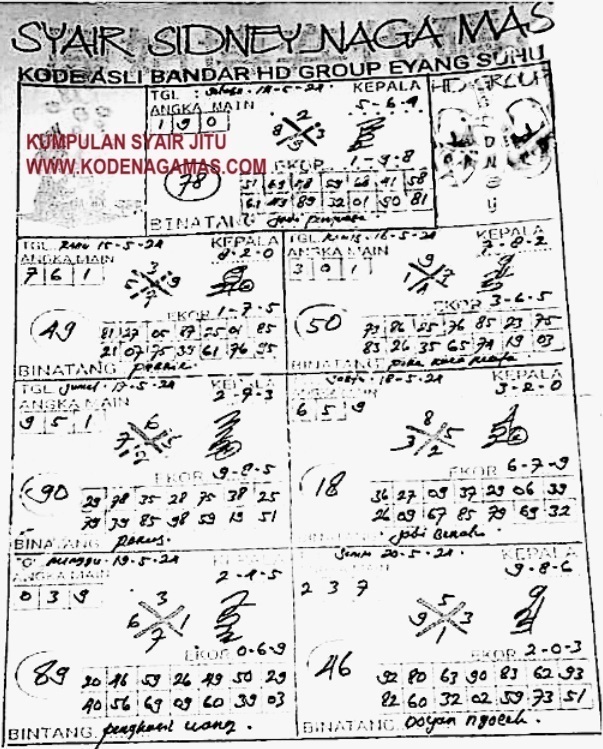 SYAIR SIDNEY NAGA MAS
KODE ASLI BANDAR HD GROUP EYANG SUHU
TGL : 14-5-24 KEPALA
ANGKA MAIN 5-6-9
1 9 0
2
8 9 3
KUMPULAN SYAIR JITU
WWW.KODENAGAMAS.COM
78
EKOR 1-9-8
51 69 78 59 68 41 58
61 49 89 32 01 50 81
BINATANG
HD GROUP
SIDNEY
TGL. Rabu 15-5-24 KEPALA
ANGKA MAIN 8-2-0
7 6 1
49
EKOR 1-7-5
81 27 05 87 25 01 85
21 07 75 39 61 76 95
BINATANG
TGL. Kamis 16-5-24 KEPALA
ANGKA MAIN 7-8-2
3 0 1
50
EKOR 3-6-5
73 86 25 76 85 23 75
83 26 35 65 74 19 03
BINATANG
TGL Jumat 17-5-24 KEPALA
ANGKA MAIN 2-9-3
9 5 1
90
EKOR 9-8-5
29 78 35 28 75 38 25
79 39 85 98 59 19 51
BINATANG
18-5-24 KEPALA
3-2-0
6 5 9
8
3 5
2
18
EKOR 6-7-9
36 27 09 37 29 06 39
26 09 67 85 79 69 32
BINATANG
Minggu 19-5-24 KEPALA
ANGKA MAIN 2-4-5
0 3 9
3
6 1
7
89
EKOR 0-6-9
20 46 59 26 49 50 29
40 56 69 09 60 39 03
BINTANG penghasil uang.
Senin 20-5-24 KEPALA
9-8-6
2 3 7
5
9 3
1
46
EKOR 2-0-3
92 80 63 90 83 62 93
82 60 32 02 59 73 51
BINATANG Doyan ngoceh.